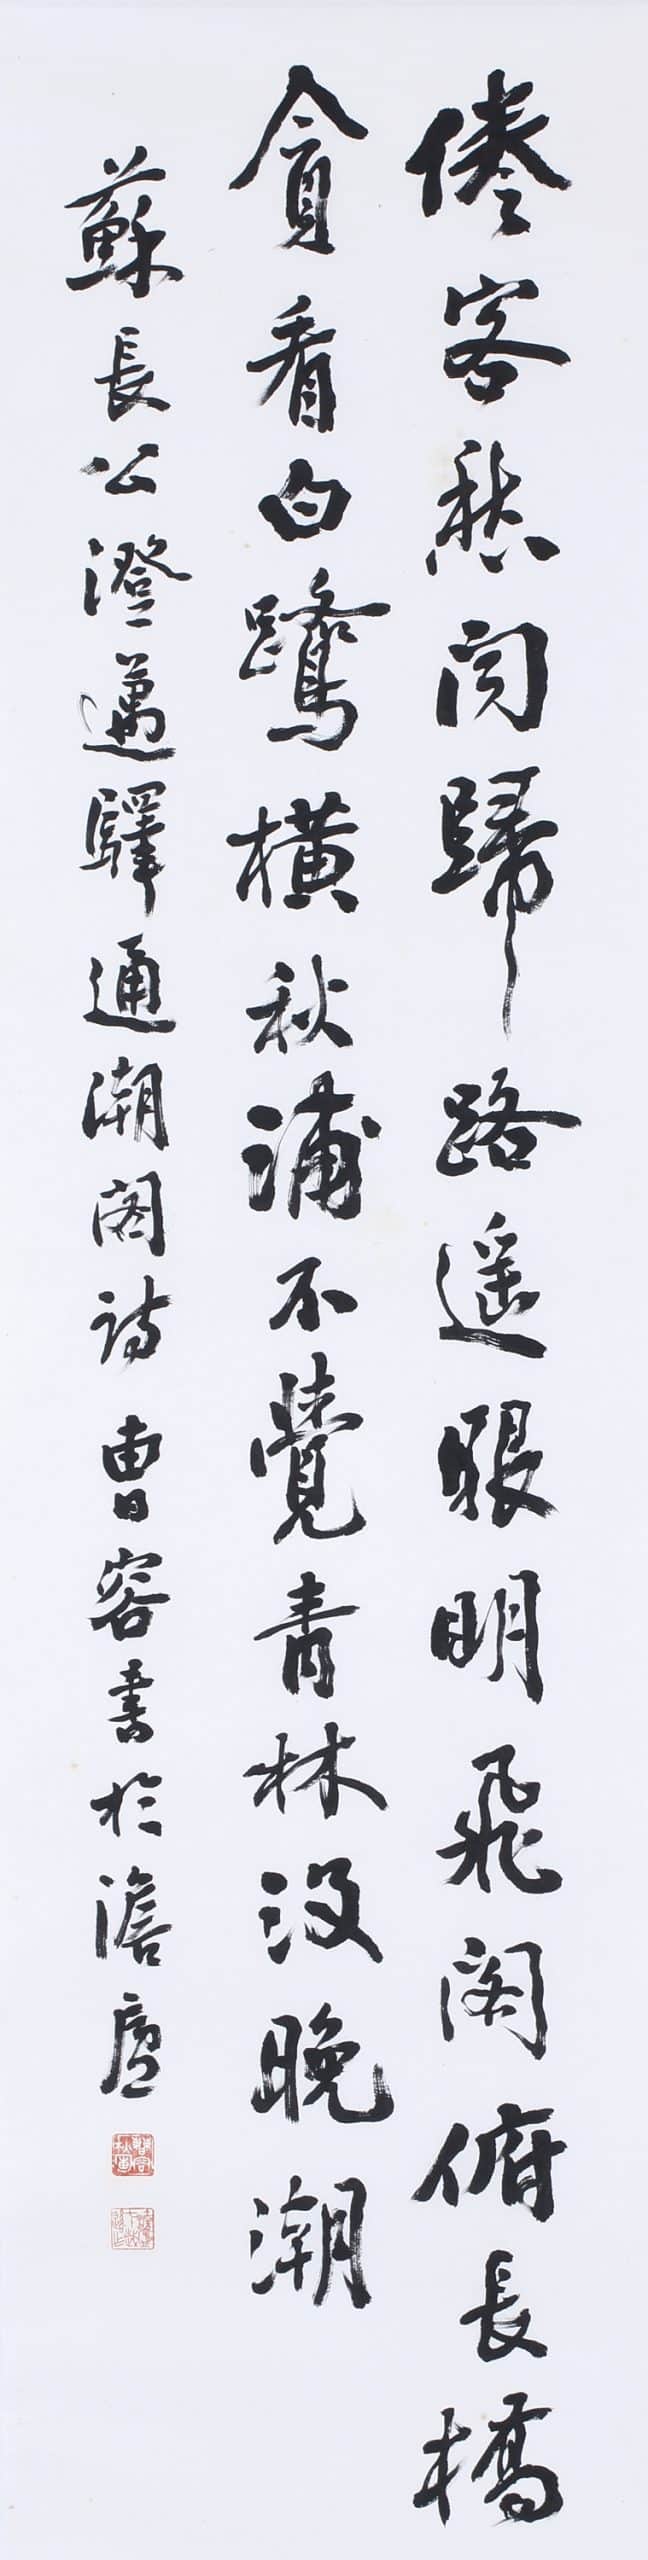 倦客愁聞歸路遥眼明飛閣俯長橋
貪看白鷺橫秋浦不覺青林沒晚潮
蘇長公澄邁驛通潮閣詩 曹容書於澹廬